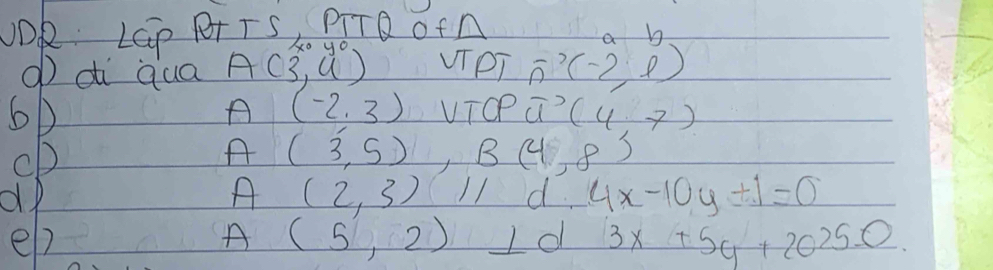 VD2: Lập PTTS, PTTQ of Δ
a) đi qua A(3, 4) VTPT n⃗(-2, 1)
x₀ y₀ a b
b) A (-2, 3) VTCP u⃗ (4, 7)
c) A (3, 5), B (4, 8)
d) A (2, 3) // d. 4x-10y+1=0
e) A (5, 2) ⊥ d 3x+5y+2025=0.